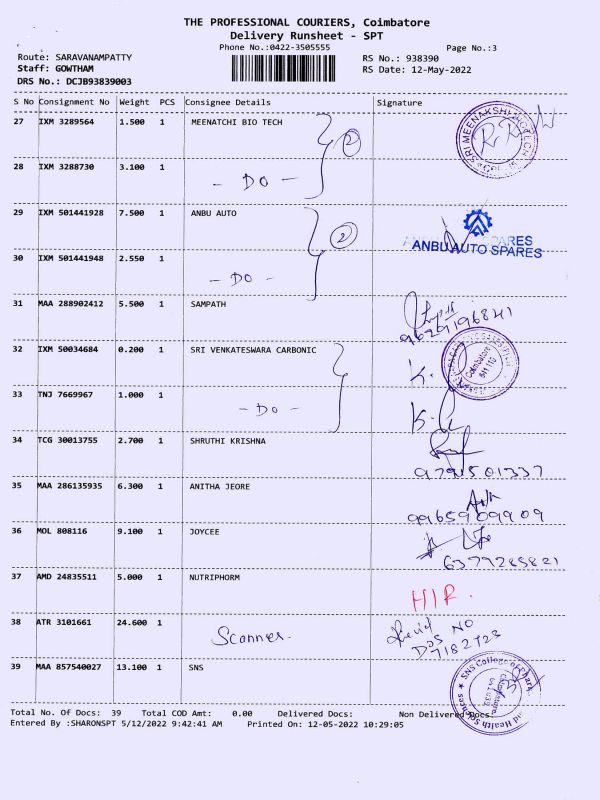 THE PROFESSIONAL COURIERS, Coimbatore
Delivery Runsheet - SPT
Phone No.:0422-3505555
Page No.:3
Route: SARAVANAMPATTY
RS No.: 938390
Staff: GOWTHAM
RS Date: 12-May-2022
DRS No.: DCJB93839003
S No Consignment No Weight PCS Consignee Details Signature
27 IXM 3289564 1.500 1 MEENATCHI BIO TECH
2
28 IXM 3288730 3.100 1
- DO -
29 IXM 501441928 7.500 1 ANBU AUTO
2
ANBU AUTO SPARES
30 IXM 501441948 2.550 1
- DO -
31 MAA 288902412 5.500 1 SAMPATH
9629196841
32 IXM 50034684 0.200 1 SRI VENKATESWARA CARBONIC
Coimbatore
33 TNJ 7669967 1.000 1
- DO -
34 TCG 30013755 2.700 1 SHRUTHI KRISHNA
9791501337
35 MAA 286135935 6.300 1 ANITHA JEORE
9965909909
36 MOL 808116 9.100 1 JOYCEE
6379285821
37 AMD 24835511 5.000 1 NUTRIPHORM
HIR.
38 ATR 3101661 24.600 1
Scanner.
NO
7182723
39 MAA 857540027 13.100 1 SNS
SNS College of
and Health Sciences
Total No. Of Docs: 39 Total COD Amt: 0.00 Delivered Docs: Non Delivered Docs:
Entered By :SHARONSPT 5/12/2022 9:42:41 AM Printed On: 12-05-2022 10:29:05